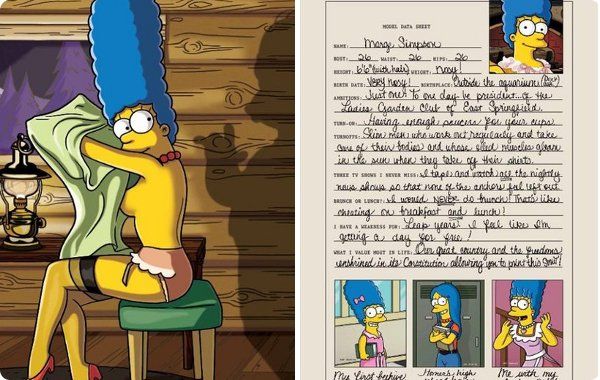 MODEL DATA SHEET
NAME: Marge Simpson
BUST: 26 WAIST: 26 HIPS: 26
HEIGHT: 6'6" (with hair) WEIGHT: Nosy!
BIRTH DATE: Very nosy! BIRTHPLACE: Outside the aquarium
AMBITIONS: Just one! To one day be president of the
Ladies Garden Club of East Springfield.
TURN-ON: Having enough saucers for your cups
TURNOFFS: Slim men who work out regularly and take
care of their bodies and whose oiled muscles gleam
in the sun when they take off their shirts.
THREE TV SHOWS I NEVER MISS: I tape and watch all the nightly
news shows so that none of the anchors feel left out
BRUNCH OR LUNCH? I would NEVER do brunch! That's like
cheating on breakfast and lunch!
I HAVE A WEAKNESS FOR: Leap years! I feel like I'm
getting a day for free!
WHAT I VALUE MOST IN LIFE: Our great country and the freedoms
enshrined in its Constitution allowing you to print this
My first beehive
Homer's high
Me with my